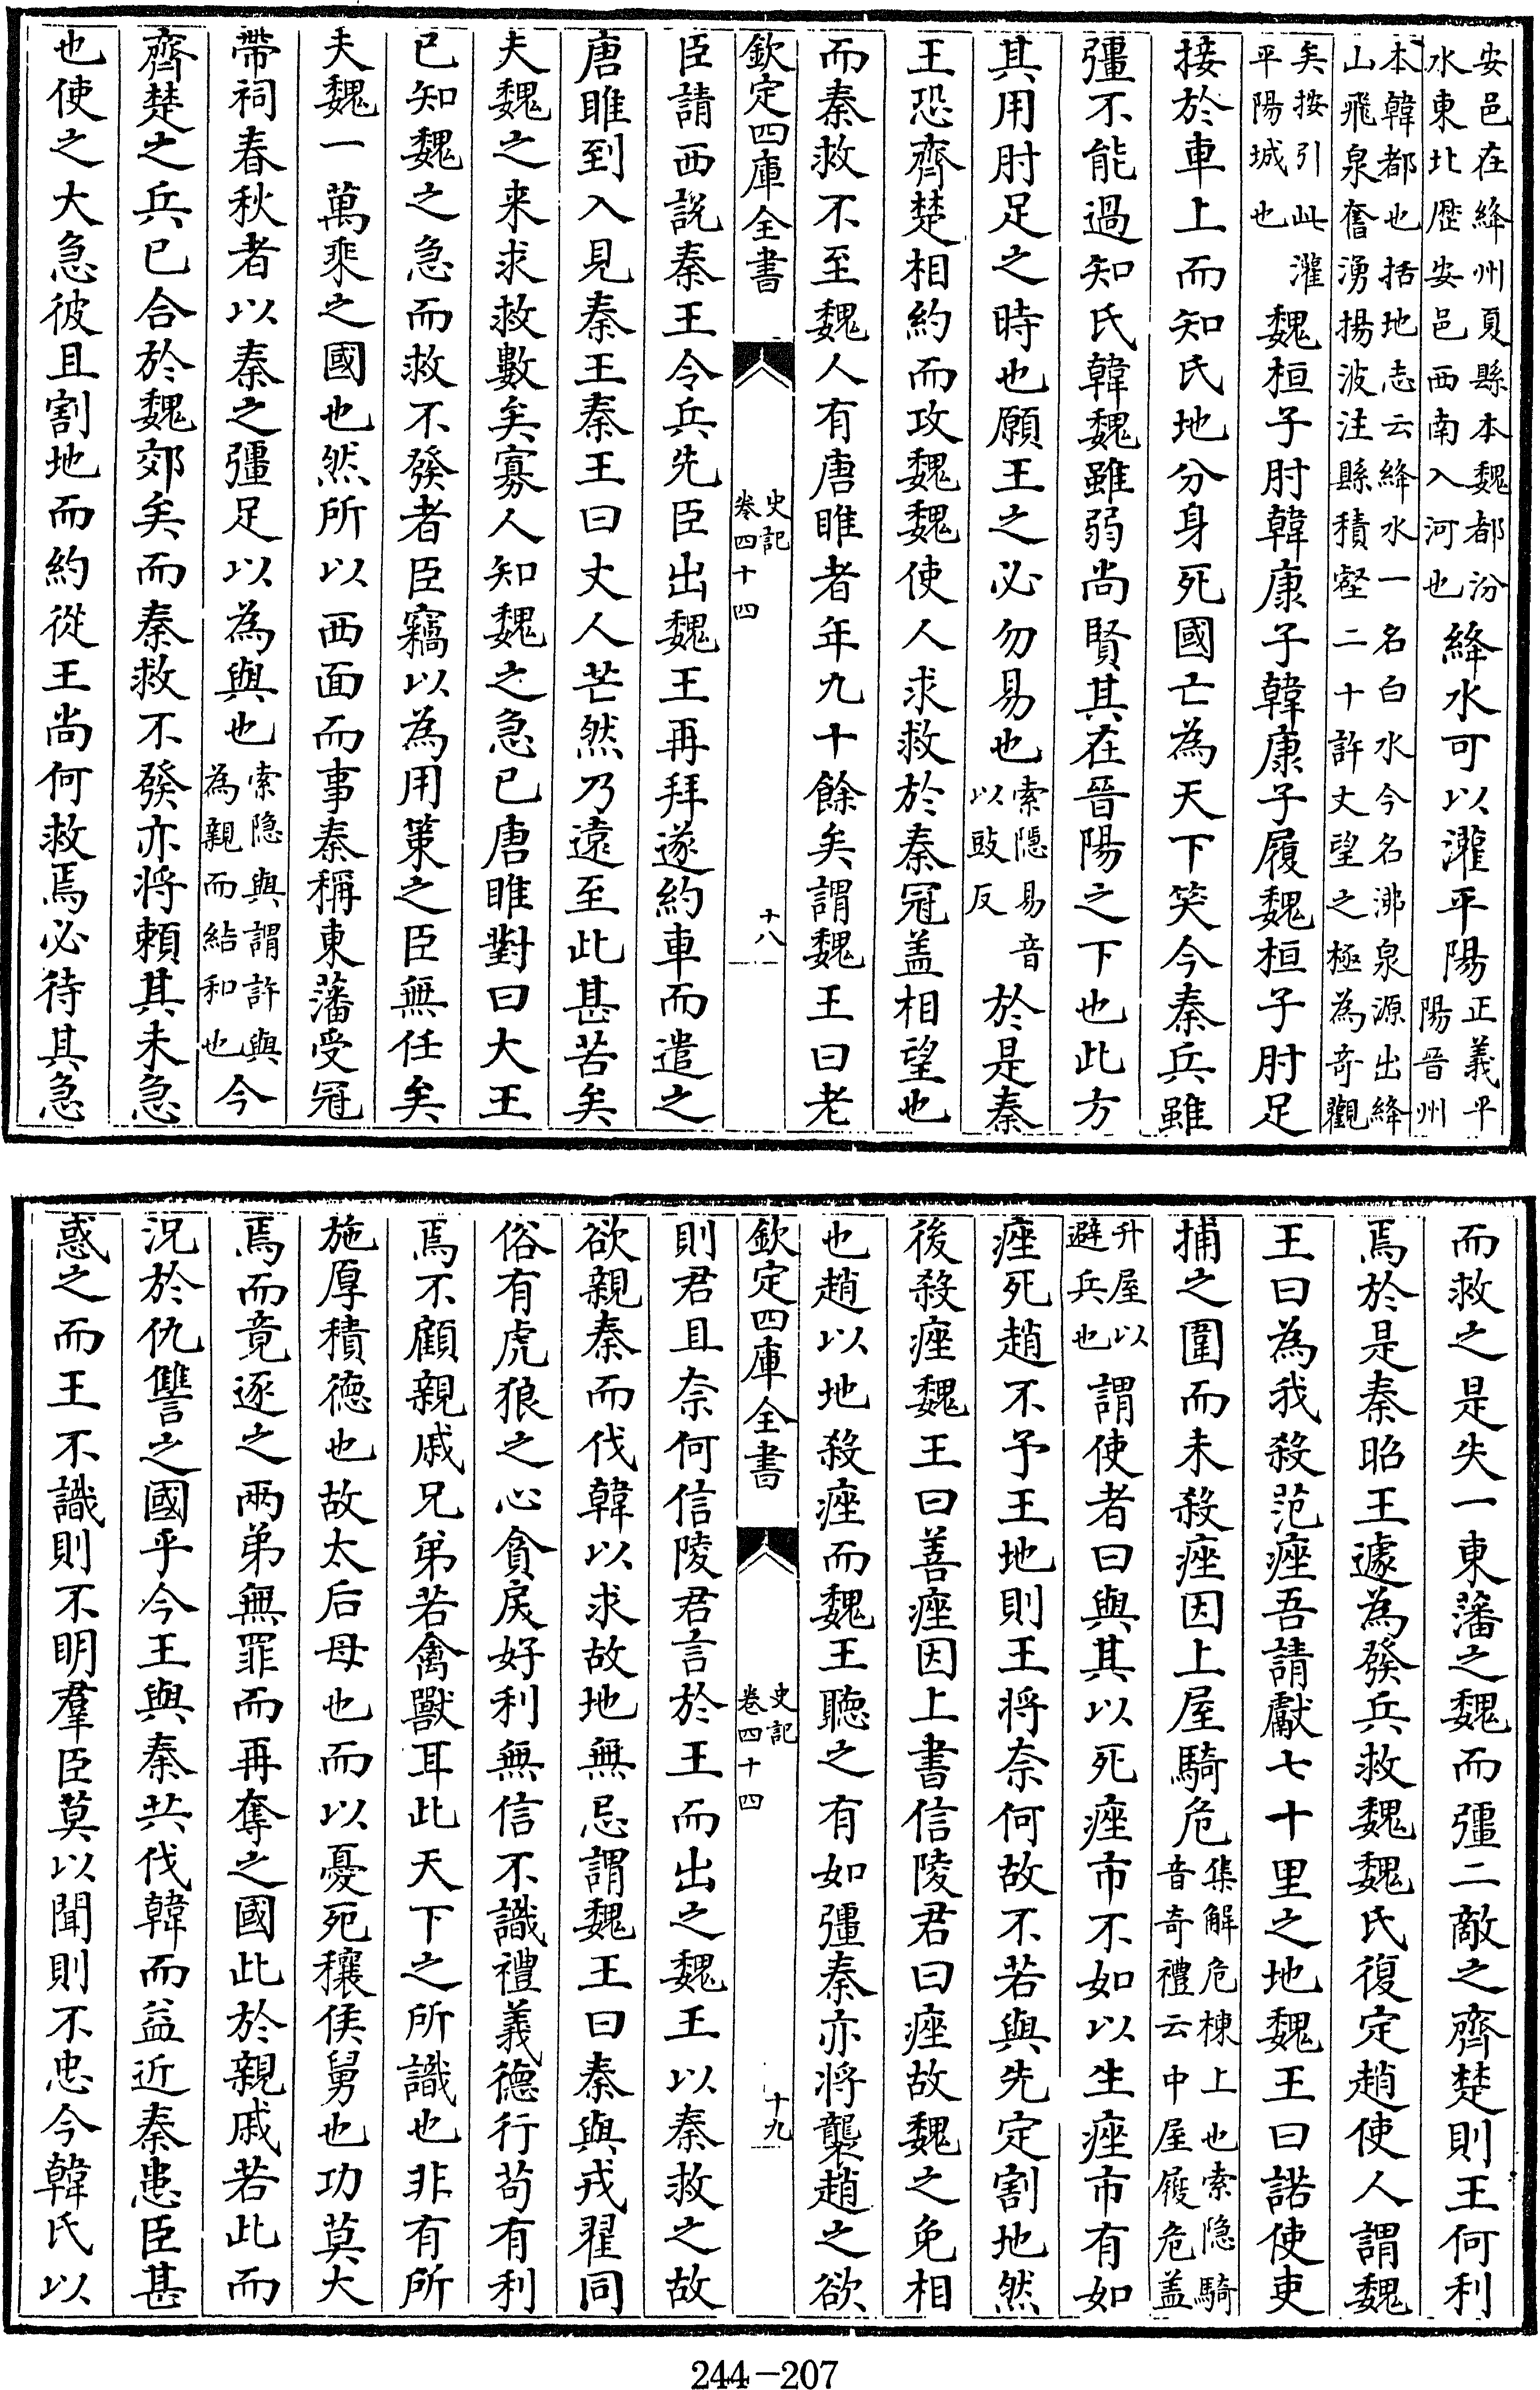 安邑在絳州夏縣本魏都汾
水東北歷安邑西南入河也
絳水可以灌平陽
正義平
陽晉州
本韓都也括地志云絳水一名白水今名沸泉源出絳
山飛泉奮湧揚波注縣積壑二十許丈望之極為奇觀
矣按引此灌
平陽城也
魏桓子肘韓康子韓康子履魏桓子肘足
接於車上而知氏地分身死國亡為天下笑今秦兵雖
彊不能過知氏韓魏雖弱尚賢其在晉陽之下也此方
其用肘足之時也願王之必勿易也
索隱易音
以豉反
於是秦
王恐齊楚相約而攻魏魏使人求救於秦冠盖相望也
而秦救不至魏人有唐雎者年九十餘矣謂魏王曰老
欽定四庫全書
史記
卷四十四
十八
臣請西說秦王令兵先臣出魏王再拜遂約車而遣之
唐雎到入見秦王秦王曰丈人芒然乃遠至此甚苦矣
夫魏之来求救數矣寡人知魏之急已唐雎對曰大王
已知魏之急而救不發者臣竊以為用策之臣無任矣
夫魏一萬乘之國也然所以西面而事秦稱東藩受冠
帶祠春秋者以秦之彊足以為與也
索隐與謂許與
為親而結和也
今
齊楚之兵已合於魏郊矣而秦救不發亦将頼其未急
也使之大急彼且割地而約從王尚何救焉必待其急
而救之是失一東藩之魏而彊二敵之齊楚則王何利
焉於是秦昭王遽為發兵救魏魏氏復定趙使人謂魏
王曰為我殺范痤吾請獻七十里之地魏王曰諾使吏
捕之圍而未殺痤因上屋騎危
集解危棟上也索隐騎
音奇禮云中屋履危盖
升屋以
避兵也
謂使者曰與其以死痤市不如以生痤市有如
痤死趙不予王地則王将奈何故不若與先定割地然
後殺痤魏王曰善痤因上書信陵君曰痤故魏之免相
也趙以地殺痤而魏王聽之有如彊秦亦将襲趙之欲
欽定四庫全書
史記
卷四十四
十九
則君且奈何信陵君言於王而出之魏王以秦救之故
欲親秦而伐韓以求故地無忌謂魏王曰秦與戎翟同
俗有虎狼之心貪戾好利無信不識禮義德行苟有利
焉不顧親戚兄弟若禽獸耳此天下之所識也非有所
施厚積德也故太后母也而以憂死穰侯舅也功莫大
焉而竟逐之兩弟無罪而再奪之國此於親戚若此而
況於仇讐之國乎今王與秦共伐韓而益近秦患臣甚
惑之而王不識則不明羣臣莫以聞則不忠今韓氏以
244-207